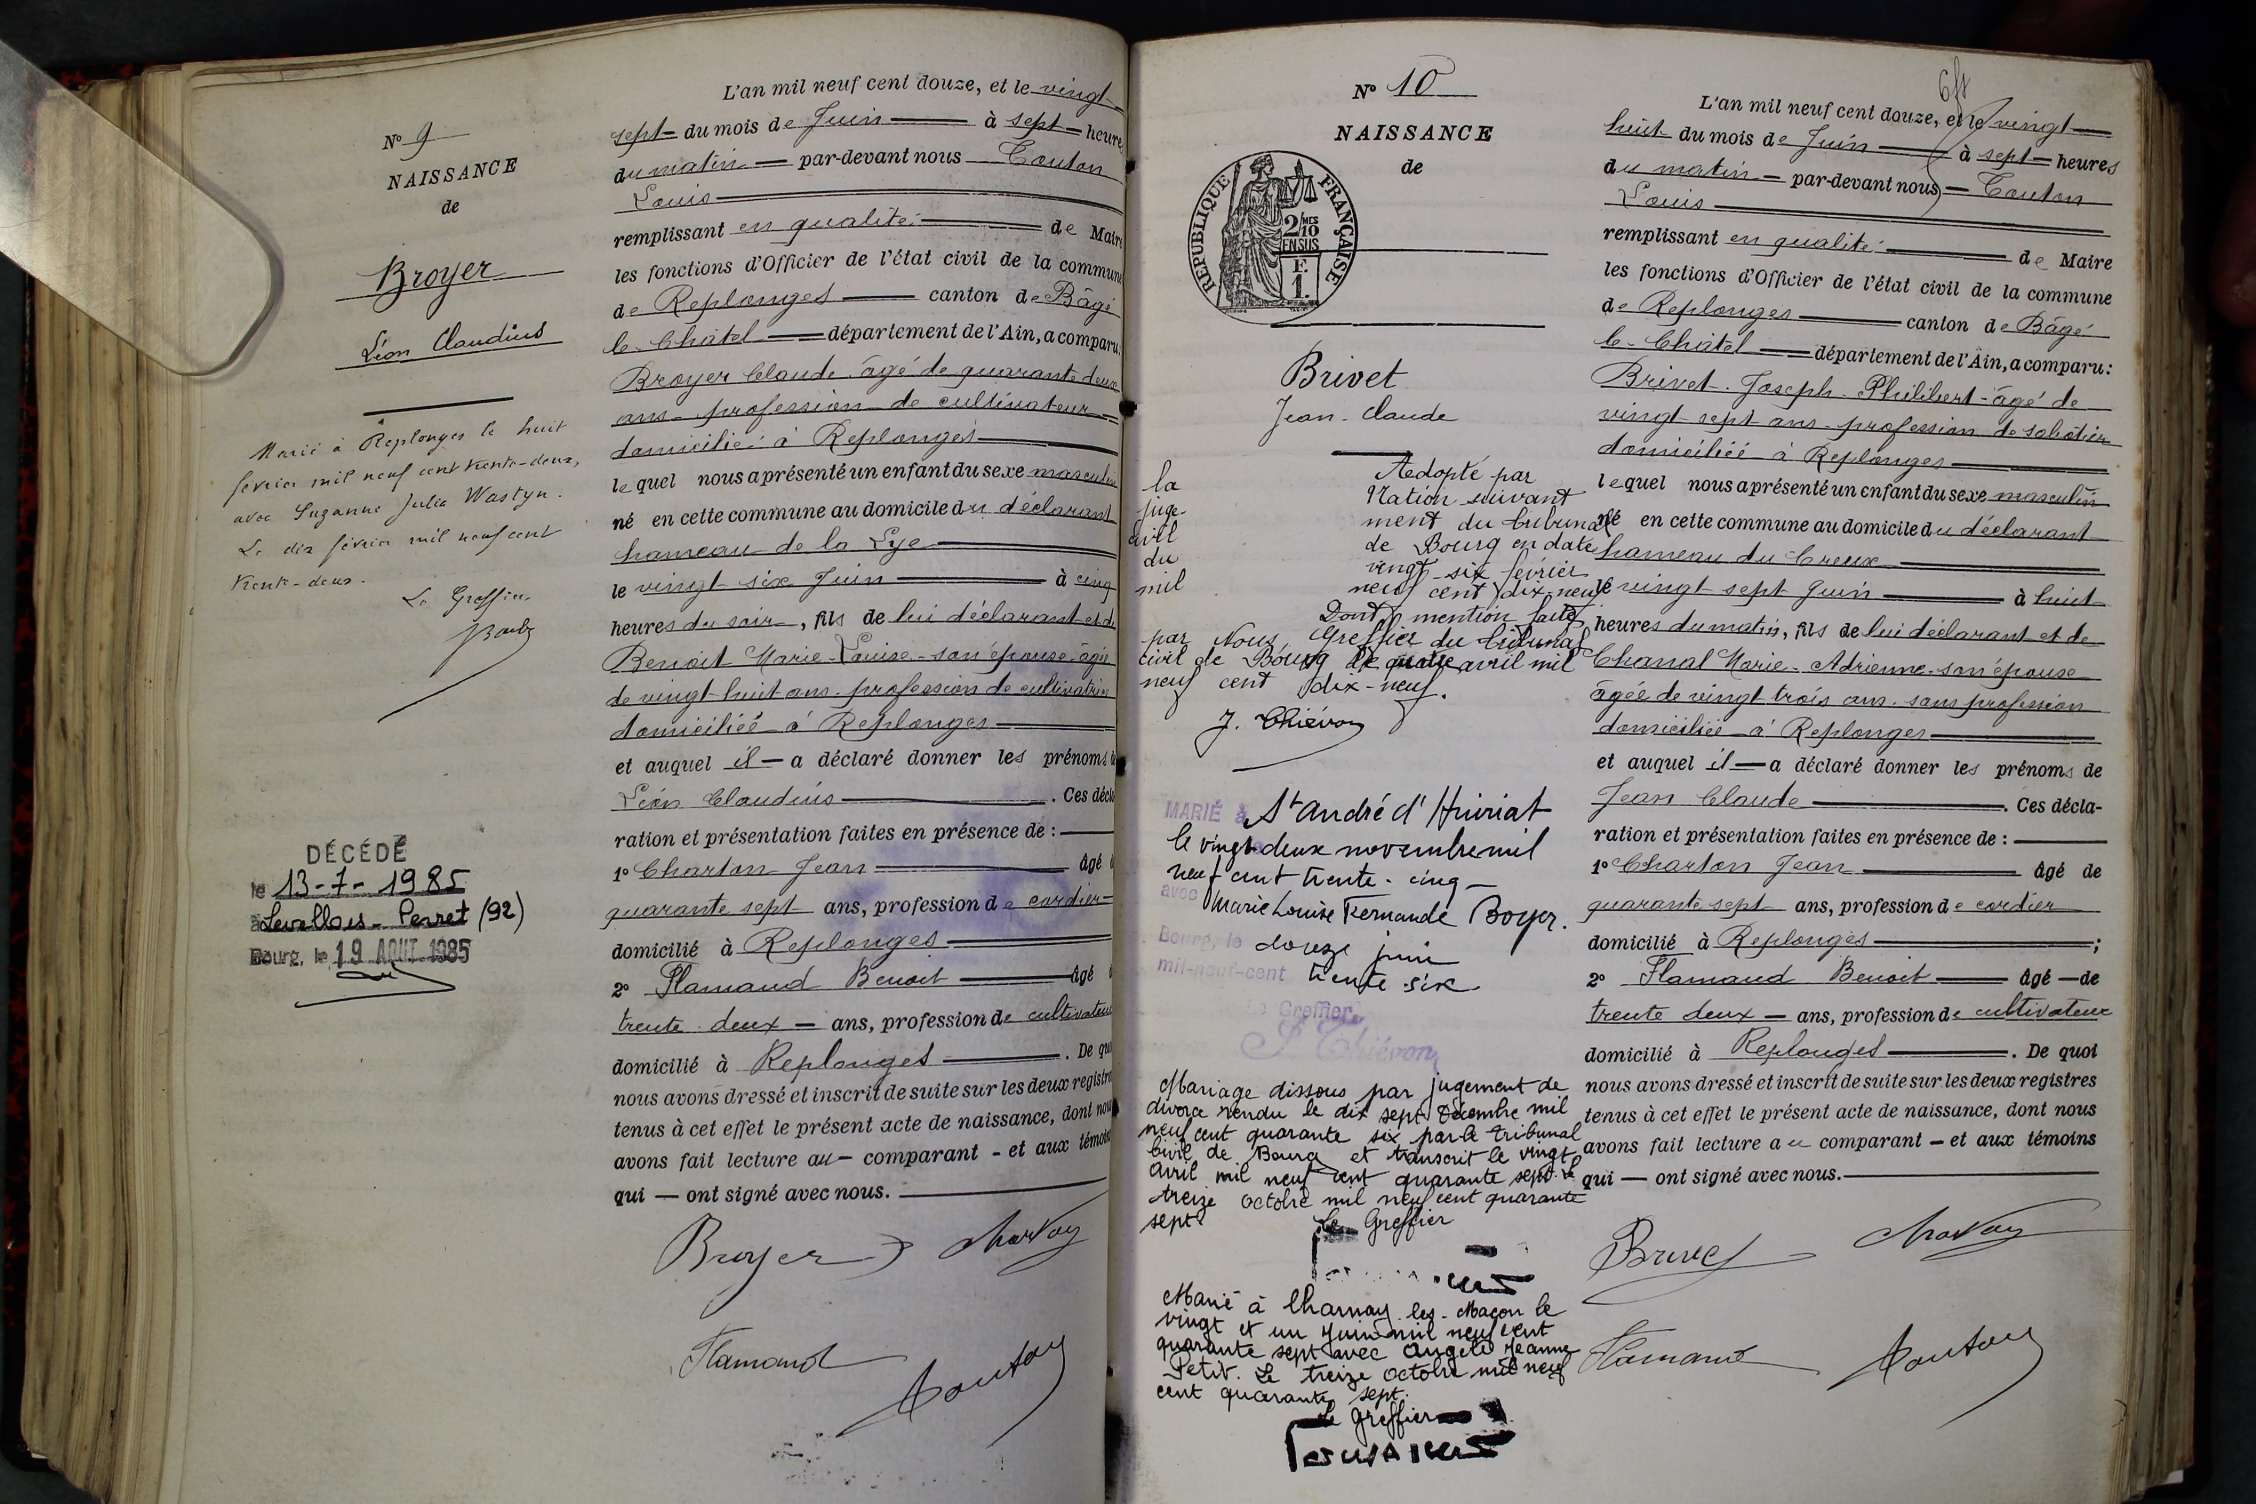 N° 9
NAISSANCE
de
Broyer
Léon Claudius
Marié à Replonges le huit
février mil neuf cent trente-deux,
avec Suzanne Julia Wastyn.
Le dix février mil neuf cent
trente-deux.
Le Greffier
DÉCÉDÉ
le 13-7-1985
à Levallois-Perret (92)
Bourg, le 19 AOUT 1985
L'an mil neuf cent douze, et le vingt
sept du mois de Juin à sept heures
du matin par-devant nous Touton
Louis
remplissant en qualité de Maire
les fonctions d'Officier de l'état civil de la commune
de Replonges canton de Bâgé
le Châtel département de l'Ain, a comparu:
Broyer Claude âgé de quarante deux
ans profession de cultivateur
domicilié à Replonges
lequel nous a présenté un enfant du sexe masculin
né en cette commune au domicile du déclarant
hameau de la Lye
le vingt six Juin à cinq
heures du soir, fils de lui déclarant et de
Benoit Marie-Louise son épouse âgée
de vingt huit ans profession de cultivatrice
domiciliée à Replonges
et auquel il a déclaré donner les prénoms de
Léon Claudius. Ces décla
ration et présentation faites en présence de :
1° Charton Jean âgé
quarante sept ans, profession de cordier
domicilié à Replonges
2° Flamand Benoit âgé
trente deux ans, profession de cultivateur
domicilié à Replonges. De quoi
nous avons dressé et inscrit de suite sur les deux registres
tenus à cet effet le présent acte de naissance, dont nous
avons fait lecture au comparant - et aux témoins
qui — ont signé avec nous.
Broyer
Flamand
Touton
N° 10
NAISSANCE
de
RÉPUBLIQUE FRANÇAISE
2/10 MES
EN SUS
F.
1.
Brivet
Jean-Claude
Adopté par la
Nation suivant juge-
ment du tribunal civil
de Bourg en date du
vingt-six février mil
neuf cent dix-neuf
Dont mention faite
par Nous, Greffier du tribunal
civil de Bourg le quatre avril mil
neuf cent dix-neuf.
J. Thiévon
MARIÉ à St André d'Huiriat
le vingt-deux novembre mil
neuf cent trente-cinq
avec Marie Louise Fernande Boyer.
Bourg, le douze juin
mil-neuf-cent trente-six
Le Greffier,
J. Thiévon
Mariage dissous par jugement de
divorce rendu le dix sept Décembre mil
neuf cent quarante six par le tribunal
Civil de Bourg et transcrit le vingt
avril mil neuf cent quarante sept. Le
treize octobre mil neuf cent quarante
sept.
Le Greffier
Marié à Charnay-les-Macon le
vingt et un Juin mil neuf cent
quarante sept avec Angèle Jeanne
Petit. Le treize octobre mil neuf
cent quarante sept.
Le Greffier
L'an mil neuf cent douze, et le vingt
huit du mois de Juin à sept heures
du matin par-devant nous Touton
Louis
remplissant en qualité de Maire
les fonctions d'Officier de l'état civil de la commune
de Replonges canton de Bâgé
le Châtel département de l'Ain, a comparu:
Brivet Joseph Philibert âgé de
vingt sept ans profession de sabotier
domicilié à Replonges
lequel nous a présenté un enfant du sexe masculin
né en cette commune au domicile du déclarant
hameau du Creux
le vingt sept Juin à huit
heures du matin, fils de lui déclarant et de
Chanal Marie-Adrienne son épouse
âgée de vingt trois ans sans profession
domiciliée à Replonges
et auquel il a déclaré donner les prénoms de
Jean Claude. Ces décla-
ration et présentation faites en présence de :
1° Charton Jean âgé de
quarante sept ans, profession de cordier
domicilié à Replonges;
2° Flamand Benoit âgé de
trente deux ans, profession de cultivateur
domicilié à Replonges. De quoi
nous avons dressé et inscrit de suite sur les deux registres
tenus à cet effet le présent acte de naissance, dont nous
avons fait lecture au comparant — et aux témoins
qui — ont signé avec nous.
Brivet
Flamand
Touton